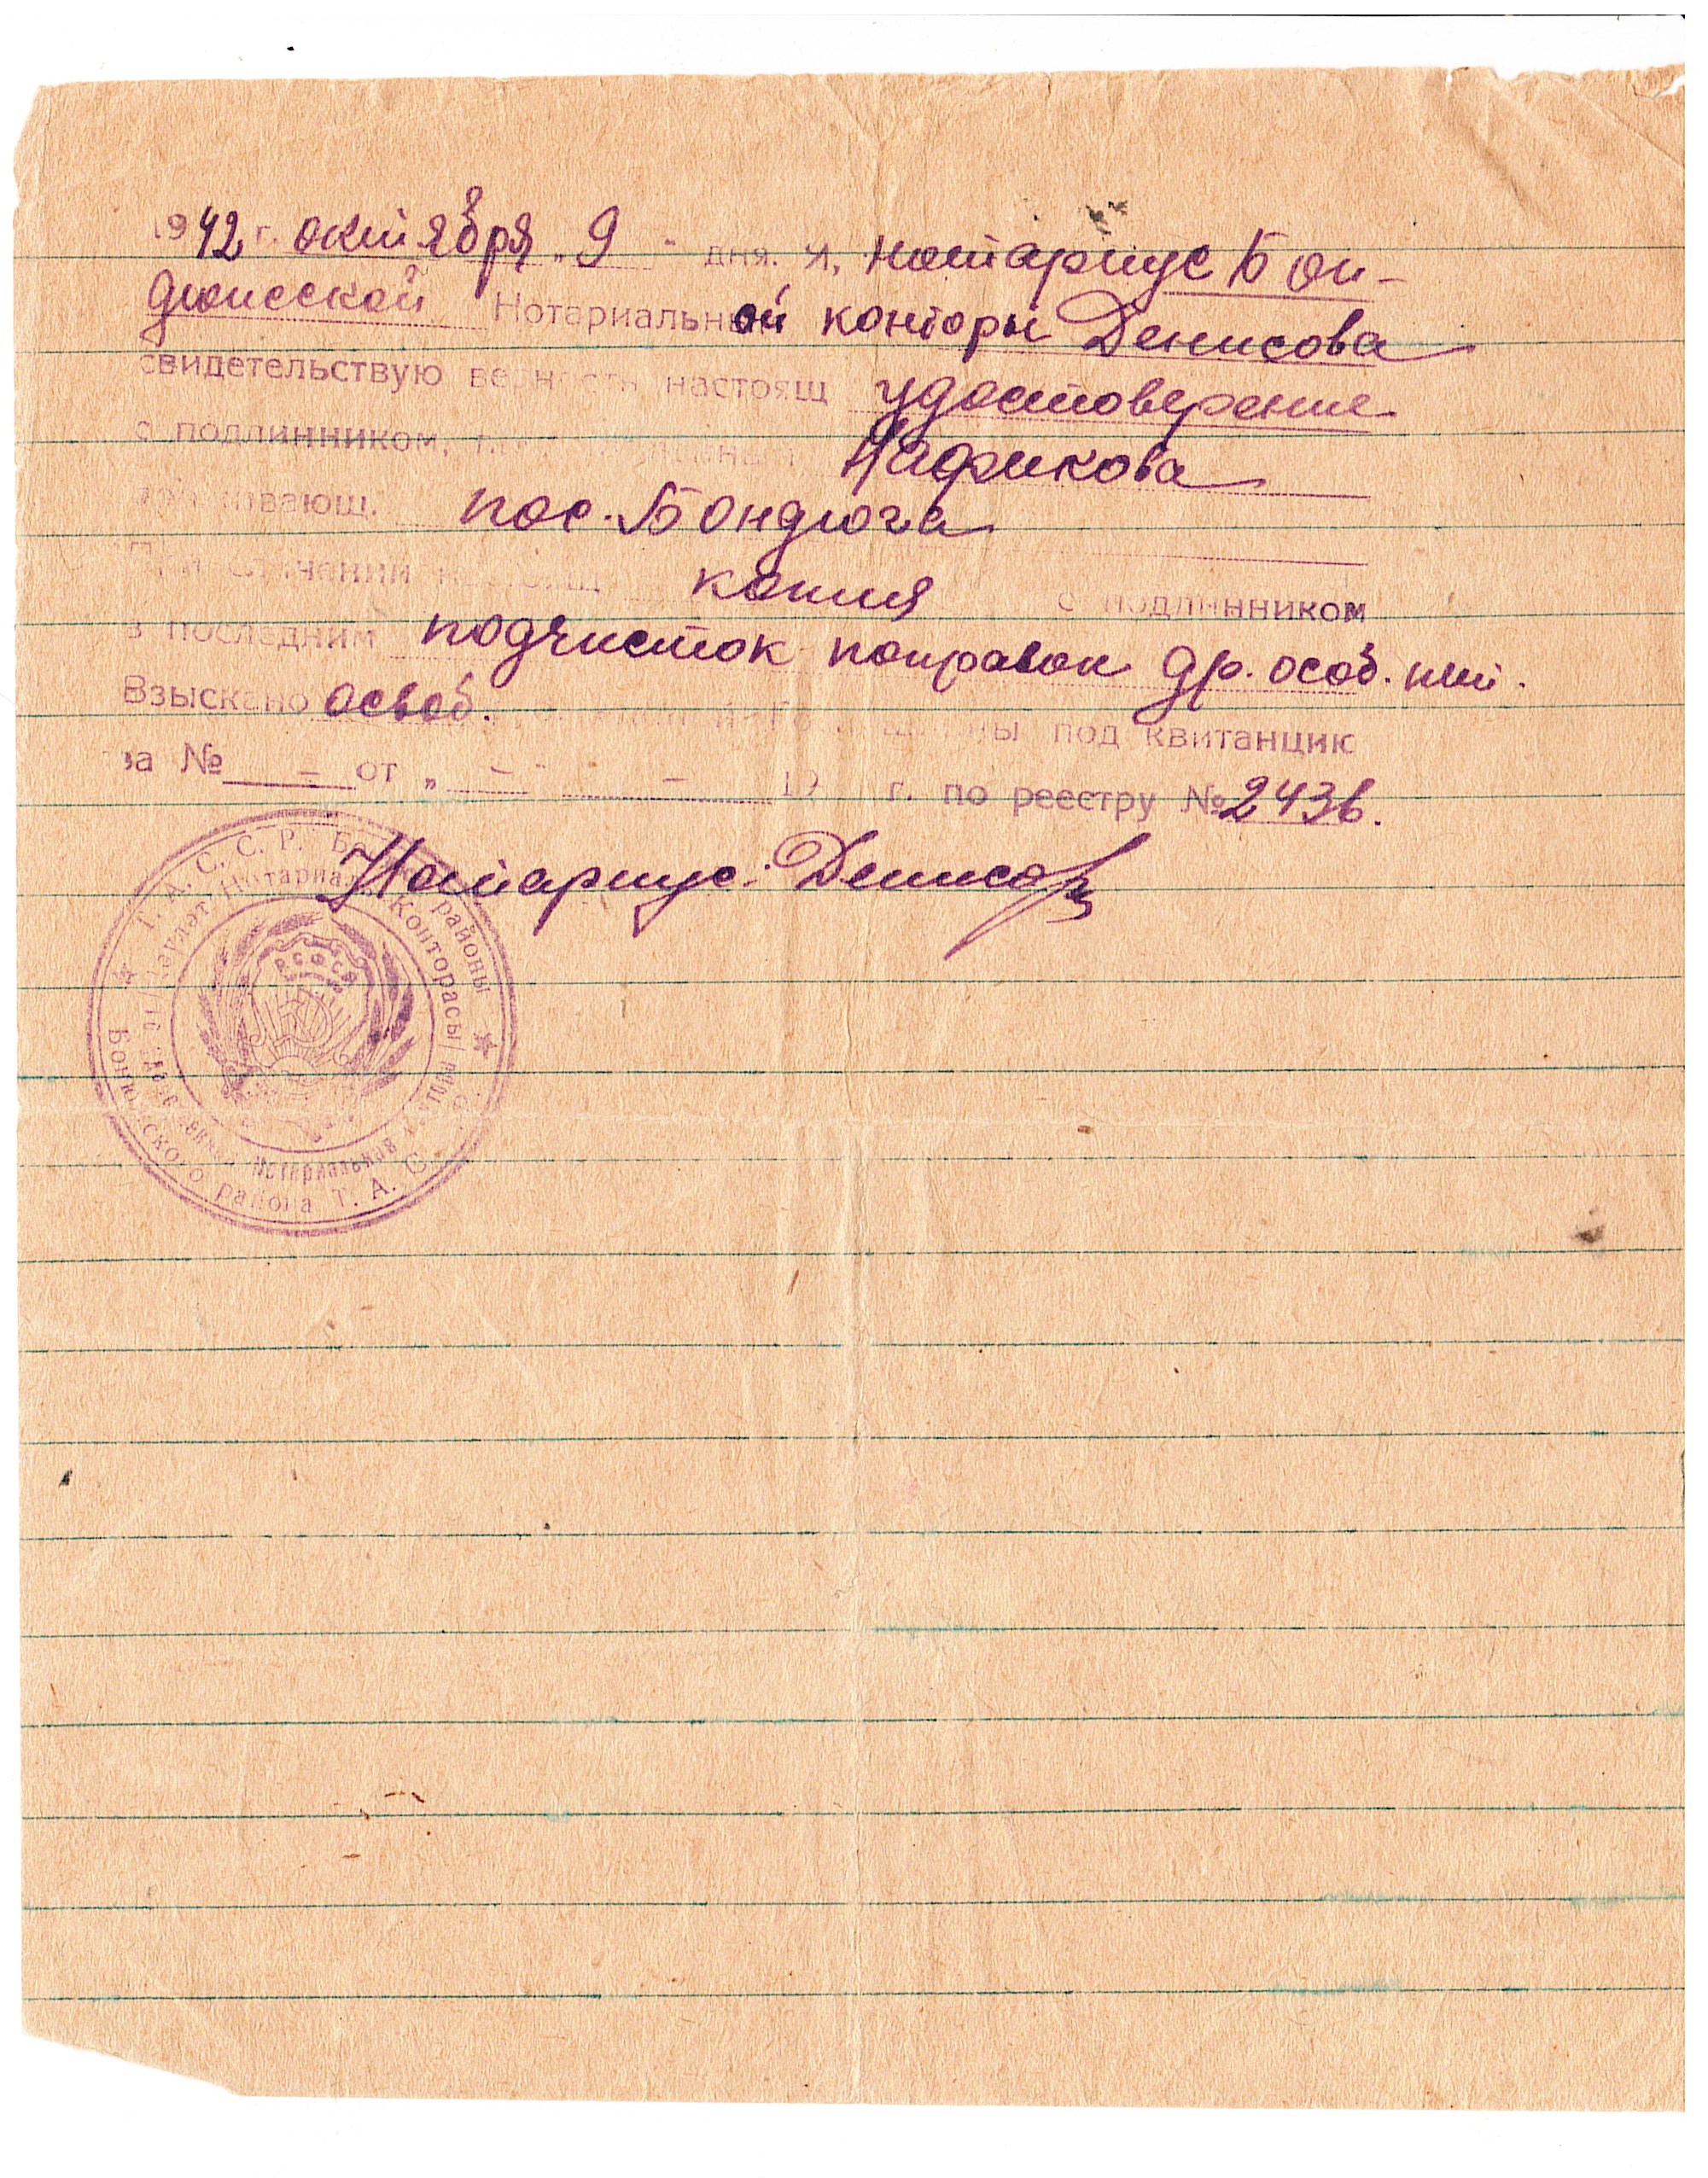 1942 г. октября „9" дня. Я, нотариус Бон-
дюжской Нотариальной конторы Денисова
свидетельствую верность настоящ удостоверение
с подлинником, Нафикова
пос. Бондюга
При сличении настоящ копия с подлинником
в последним подчисток поправок др. особ. нет.
Взыскано освоб. под квитанцию
за № – от „ – " – 19 г. по реестру № 2436.
Нотариус: Денисов
Т. А. С. С. Р. районы
Дәүләт Нотариал Конторасы
Р С Ф С Р
Нотариальная
района Т. А. С.